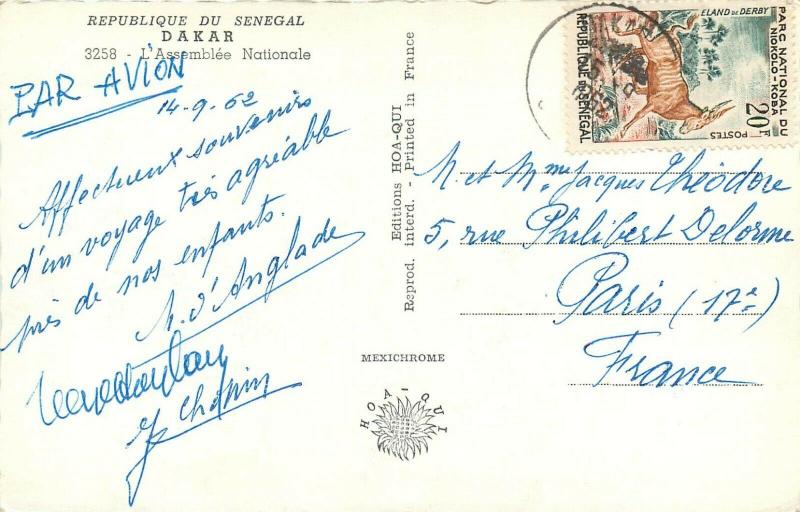 REPUBLIQUE DU SENEGAL
DAKAR
3258 - L'Assemblée Nationale
PAR AVION
14-9-62
Affectueux souvenirs
d'un voyage très agréable
près de nos enfants.
d'Anglade
J Chopin
Editions HOA-QUI
Reprod. Interd. - Printed in France
MEXICHROME
HOA-QUI
ELAND DE DERBY
PARC NATIONAL DU
NIOKOLO-KOBA
REPUBLIQUE DU SENEGAL
20F
POSTES
M. et Mme Jacques Théodore
5, rue Philibert Delorme
Paris (17e)
France